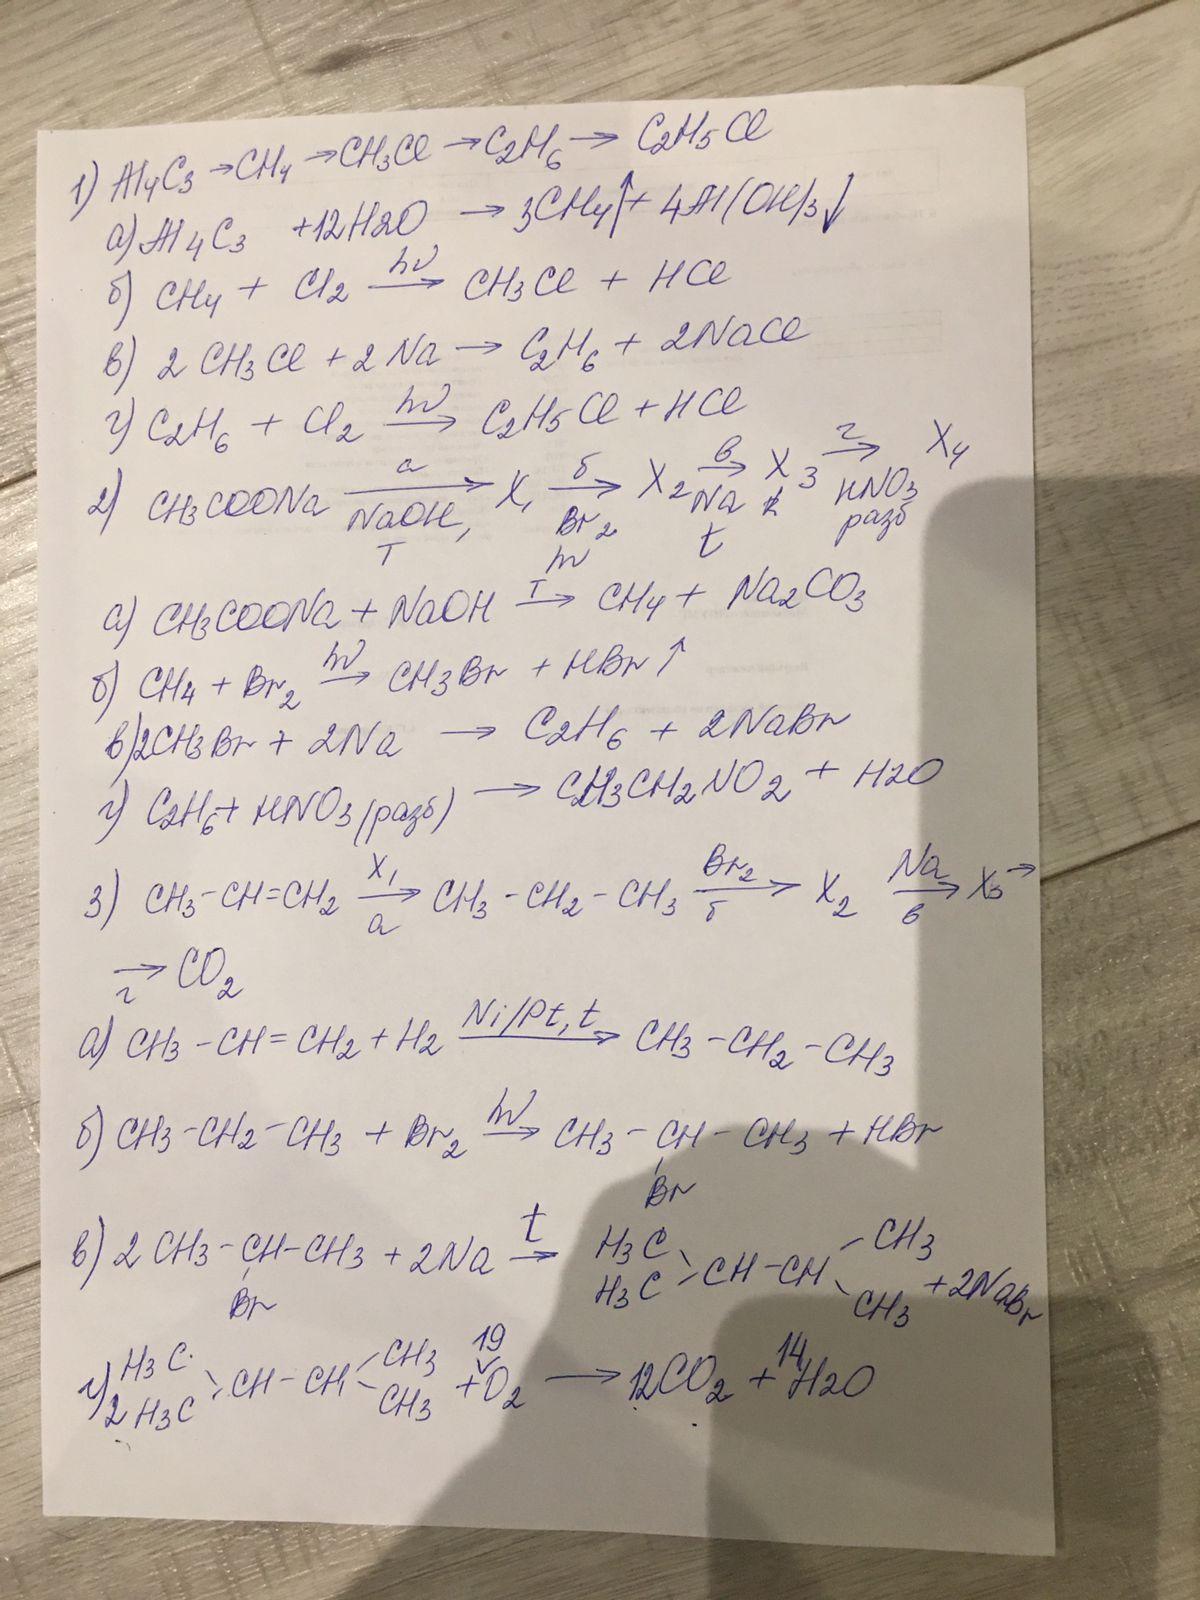 1) Al4C3 → CH4 → CH3Cl → C2H6 → C2H5Cl
а) Al4C3 + 12H2O → 3CH4↑ + 4Al(OH)3↓
б) CH4 + Cl2 hν → CH3Cl + HCl
в) 2CH3Cl + 2Na → C2H6 + 2NaCl
г) C2H6 + Cl2 hν → C2H5Cl + HCl
2) CH3COONa а → NaOH, T X1 б → Br2 hν X2 в → Na t X3 г → HNO3 разб X4
а) CH3COONa + NaOH T → CH4 + Na2CO3
б) CH4 + Br2 hν → CH3Br + HBr↑
в) 2CH3Br + 2Na → C2H6 + 2NaBr
г) C2H6 + HNO3 (разб) → CH3CH2NO2 + H2O
3) CH3-CH=CH2 X1 → а CH3-CH2-CH3 Br2 → б X2 Na → в X3 →
→ г CO2
а) CH3-CH=CH2 + H2 Ni/Pt, t → CH3-CH2-CH3
б) CH3-CH2-CH3 + Br2 hν → CH3-CH-CH3 + HBr
Br
в) 2CH3-CH-CH3 + 2Na t → H3C H3C CH-CH CH3 CH3 + 2NaBr
Br
г) 2 H3C H3C CH-CH CH3 CH3 + 19 O2 → 12CO2 + 14H2O